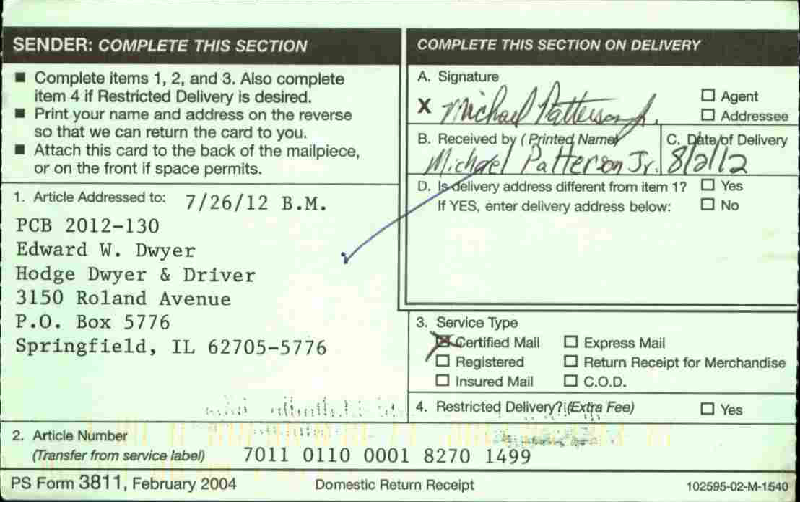 SENDER: COMPLETE THIS SECTION
■ Complete items 1, 2, and 3. Also complete
item 4 if Restricted Delivery is desired.
■ Print your name and address on the reverse
so that we can return the card to you.
■ Attach this card to the back of the mailpiece,
or on the front if space permits.
1. Article Addressed to: 7/26/12 B.M.
PCB 2012-130
Edward W. Dwyer
Hodge Dwyer & Driver
3150 Roland Avenue
P.O. Box 5776
Springfield, IL 62705-5776
COMPLETE THIS SECTION ON DELIVERY
A. Signature
X Michael Patterson Jr.
☐ Agent
☐ Addressee
B. Received by (Printed Name) C. Date of Delivery
Michael Patterson Jr. 8/2/12
D. Is delivery address different from item 1? ☐ Yes
If YES, enter delivery address below: ☐ No
3. Service Type
☒ Certified Mail ☐ Express Mail
☐ Registered ☐ Return Receipt for Merchandise
☐ Insured Mail ☐ C.O.D.
4. Restricted Delivery? (Extra Fee) ☐ Yes
2. Article Number
(Transfer from service label) 7011 0110 0001 8270 1499
PS Form 3811, February 2004 Domestic Return Receipt 102595-02-M-1540